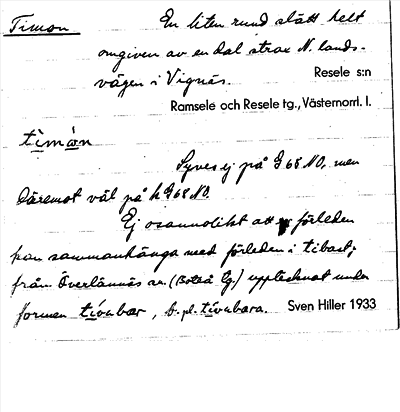 Timon En liten rund slätt helt
omgiven av en dal strax N. lands-
vägen i Vignäs.
Resele s:n
Ramsele och Resele tg., Västernorrl. l.
tìmȯn
Synes ej på G 68 NO, men
däremot väl på h G 68 NO.
Ej osannolikt att förleden
kan sammanhänga med förleden i tibast,
från Överlännäs sn. (Boteå tg.) upptecknat under
formen tívnbar, b. pl. tívnbara.
Sven Hiller 1933